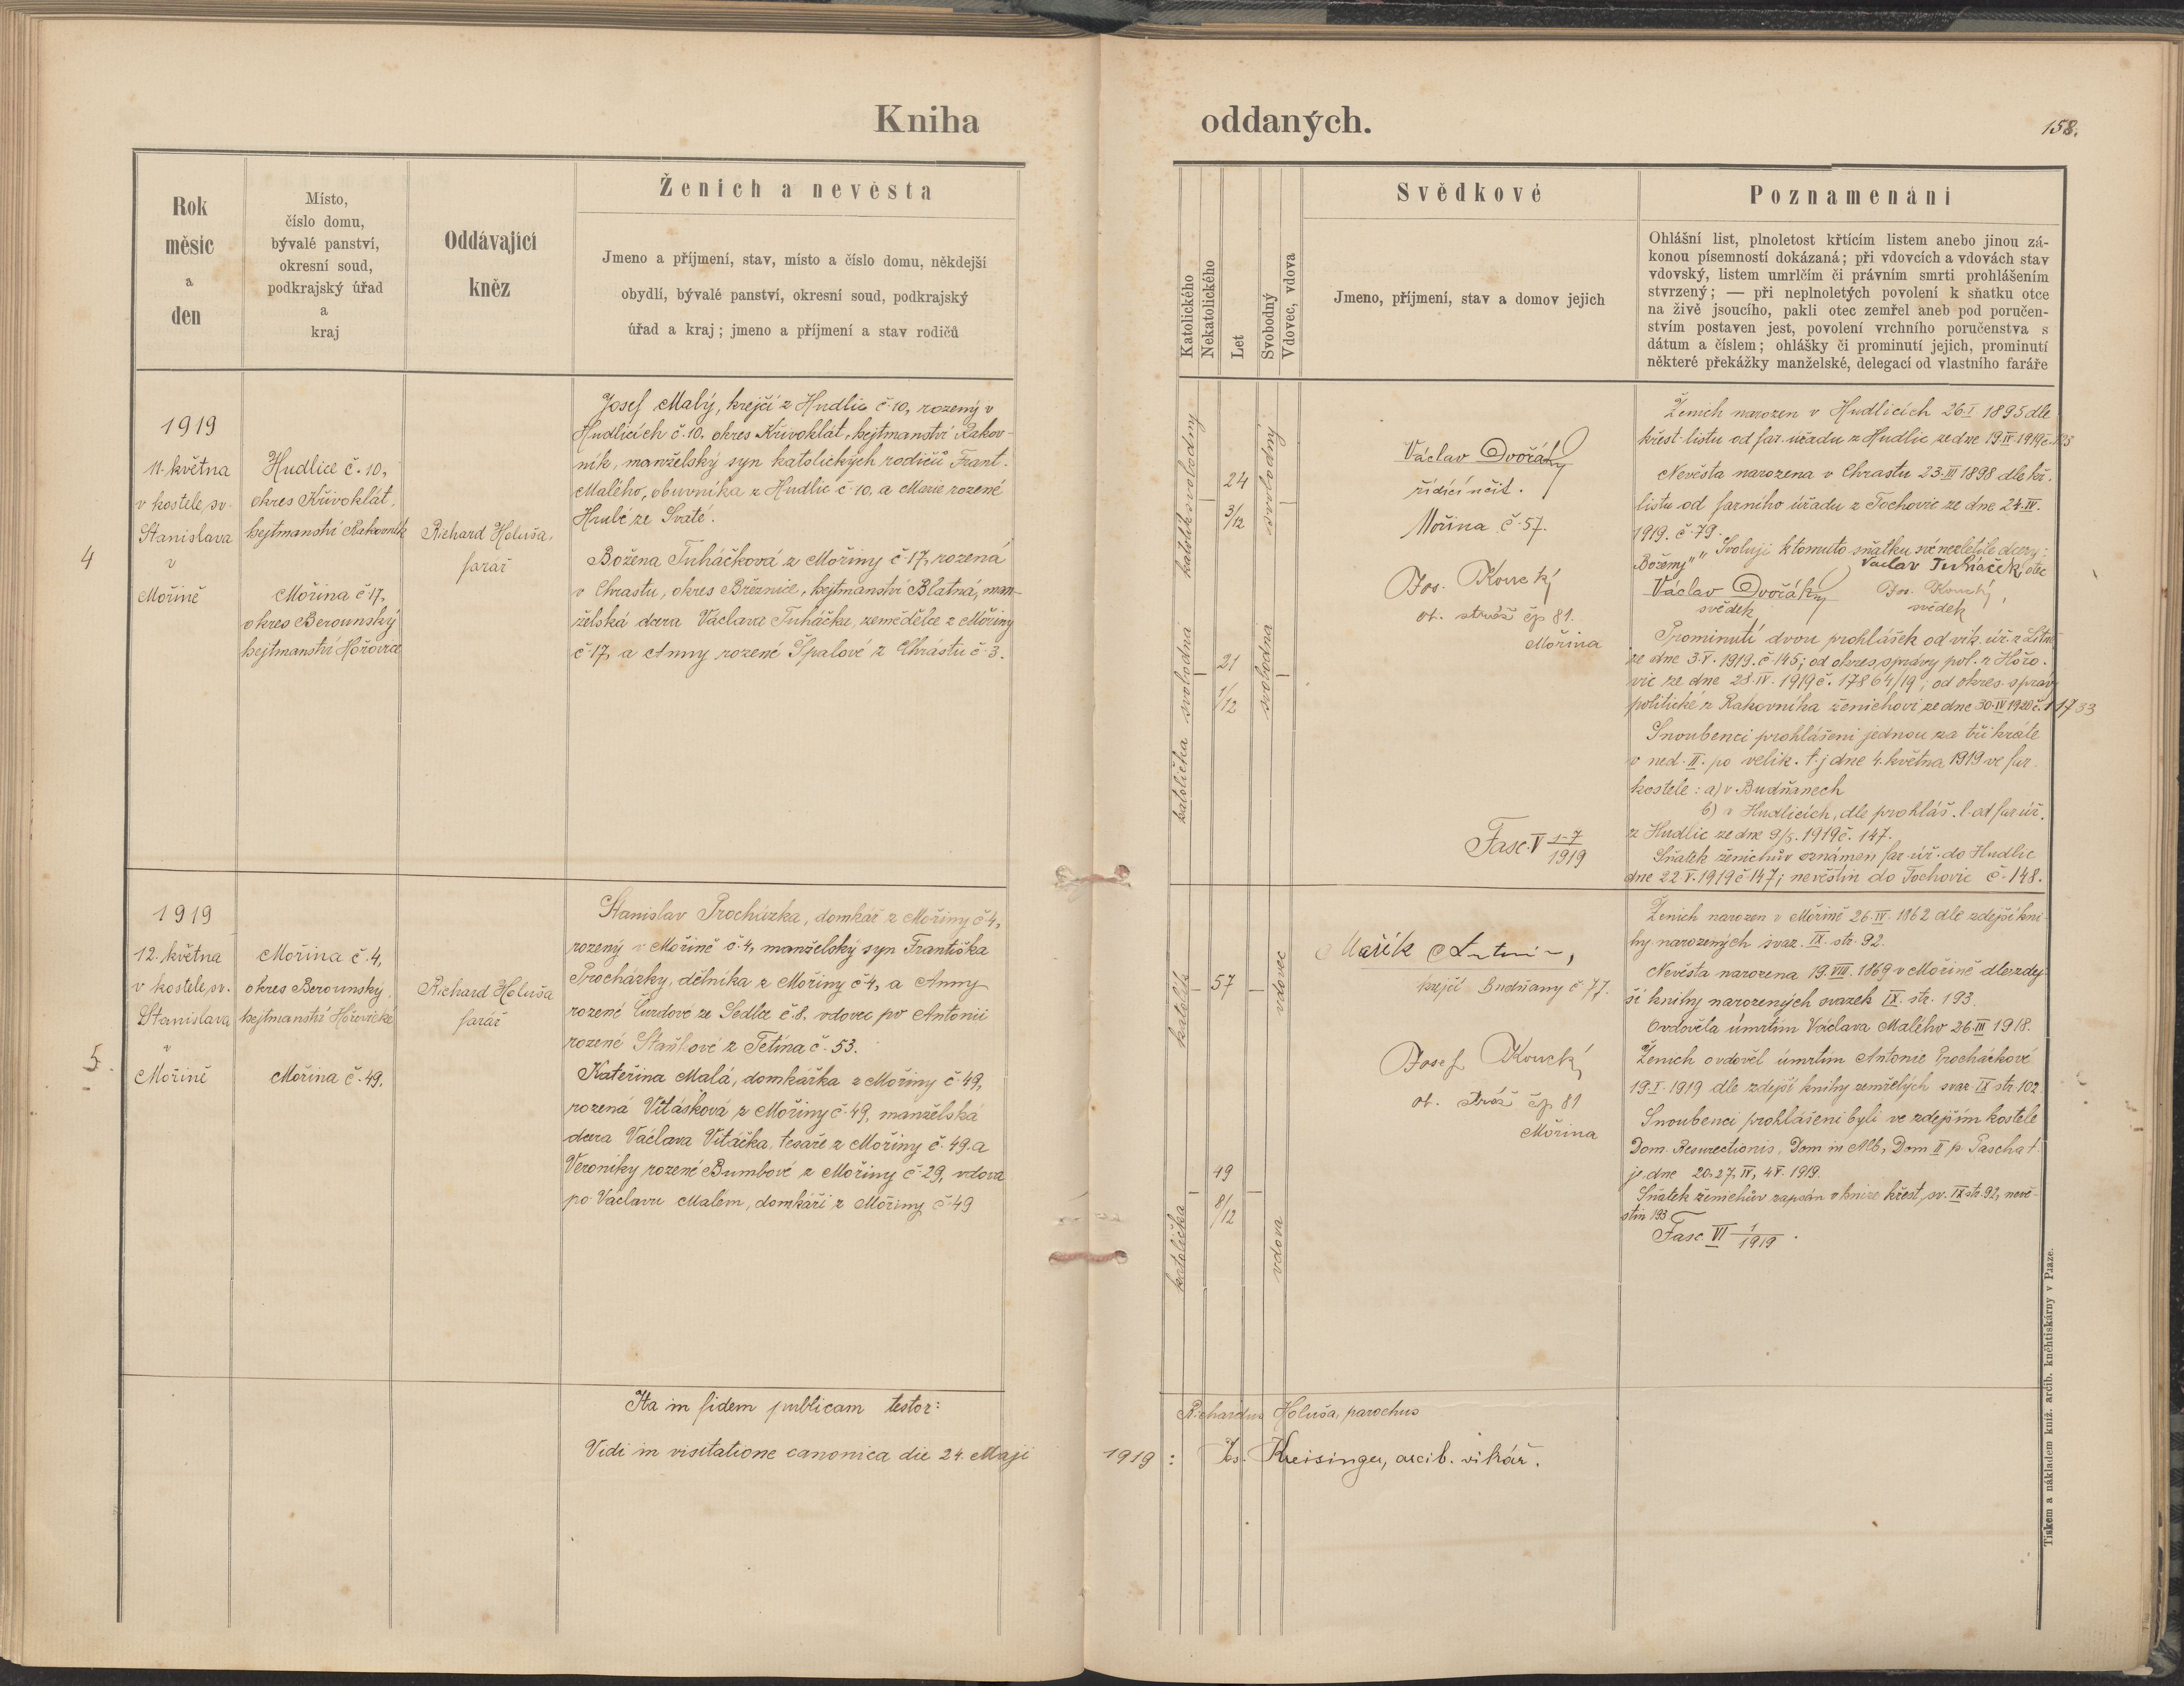 Kniha
oddaných.
158.
Rok
měsíc
a
den
Místo,
číslo domu,
bývalé panství,
okresní soud,
podkrajský úřad
a
kraj
Oddávající
kněz
Ženich a nevěsta
Jmeno a příjmení, stav, místo a číslo domu, někdejší
obydlí, bývalé panství, okresní soud, podkrajský
úřad a kraj; jmeno a příjmení a stav rodičů
Katolického
Nekatolického
Let
Svobodný
Vdovec, vdova
Svědkové
Jmeno, příjmení, stav a domov jejich
Poznamenání
Ohlášní list, plnoletost křtícím listem anebo jinou zá-
konou písemností dokázaná; při vdovcích a vdovách stav
vdovský, listem umrlčím či právním smrti prohlášením
stvrzený; — při neplnoletých povolení k sňatku otce
na živě jsoucího, pakli otec zemřel aneb pod poručen-
stvím postaven jest, povolení vrchního poručenstva s
dátum a číslem; ohlášky či prominutí jejich, prominutí
některé překážky manželské, delegací od vlastního faráře
4
1919
11. května
v kostele sv.
Stanislava
v
Mořině
Hudlice č. 10,
okres Křivoklát,
hejtmanství Rakovník
Mořina č 17,
okres Berounský
hejtmanství Hořovice
Richard Holuša,
farář
Josef Malý, krejčí z Hudlic č. 10, rozený v
Hudlicích č. 10, okres Křivoklát, hejtmanství Rakov-
ník, manželský syn katolických rodičů Frant.
Malého, obuvníka z Hudlic č. 10, a Marie rozené
Hrubé ze Svaté.
Božena Tuháčková z Mořiny č. 17, rozená
v Chrastu, okres Březnice, hejtmanství Blatná, man-
želská dcera Václava Tuháčka, zemědělce z Mořiny
č. 17, a Anny rozené Špalové z Chrástu č. 3.
katolík svobodný
24
3/12
svobodný
katolička svobodna
21
1/12
svobodna
Václav Dvořák
řídící učit.
Mořina č. 57.
Jos. Koucký
ob. stráž čp 81.
Mořina
Fasc. V 1-7/1919
Ženich narozen v Hudlicích 26. I. 1895 dle
křest. listu od far. úřadu z Hudlic ze dne 19. IV. 1919 č.
Nevěsta narozena v Chrastu 23. III 1898 dle kř.
listu od farního úřadu z Tochovic ze dne 24. IV.
1919. č. 79.
Svoluji k tomuto sňatku své nezletilé dcery:
Boženy"
Václav Tuháček, otec
Václav Dvořák, Jos. Koucký,
svědek svědek
Prominutí dvou prohlášek od vik. úř. z Litně
ze dne 3. V. 1919. č. 145; od okres. správy pol. z Hořo-
vic ze dne 28. IV. 1919 č. 17864/19; od okres. správy
politické z Rakovníka ženichovi ze dne 30. IV 1920 č. 11733
Snoubenci prohlášeni jednou za tři kráte
v ned. II. po velik. t. j dne 4. května 1919 ve far.
kostele: a) v Budňanech
b) v Hudlicích, dle prohláš. l. od far. úř.
z Hudlic ze dne 9/5. 1919 č. 147.
Sňatek ženichův oznámen far. úř. do Hudlic
dne 22. V. 1919 č 147; nevěstin do Tochovic č. 148.
5.
1919
12. května
v kostele sv.
Stanislava
v
Mořině
Mořina č. 4,
okres Berounský
hejtmanství Hořovické
Mořina č. 49.
Richard Holuša
farář
Stanislav Procházka, domkář z Mořiny č 4,
rozený v Mořině č. 4, manželský syn Františka
Procházky, dělníka z Mořiny č 4, a Anny
rozené Čurdové ze Sedlce č. 8. vdovec po Antonii
rozené Staňkové z Tetína č. 53.
Kateřina Malá, domkářka z Mořiny č. 49,
rozená Vitásková z Mořiny č. 49, manželská
dcera Václava Vitáčka, tesaře z Mořiny č. 49. a
Veroniky rozené Bumbové z Mořiny č 29, vdova
po Václavu Malém, domkáři z Mořiny č 49
katolík
57
vdovec
katolička
49
8/12
vdova
Mařík Antonín,
krejčí Budňany č 77.
Josef Koucký
ob. stráž čp 81
Mořina
Ženich narozen v Mořině 26. IV. 1862 dle zdejší kni-
hy narozených svaz. IX. str. 92.
Nevěsta narozena 19. VIII. 1869 v Mořině dle zdej-
ší knihy narozených svazek IX. str. 193.
Ovdověla úmrtím Václava Malého 26. III 1918.
Ženich ovdověl úmrtím Antonie Procháckové
19. I. 1919 dle zdejší knihy zemřelých svaz. IX str. 102.
Snoubenci prohlášeni byli ve zdejším kostele
Dom. Resurectionis, Dom in Alb, Dom II p. Pascha t.
j. dne 20, 27. IV, 4 V. 1919.
Sňatek ženichův zapsán v knize křest. sv. IX str. 92, nevě-
stin 193
Fasc VI 1/1919.
Ita in fidem publicam testor:
Richardus Holuša, parochus
Vidi in visitatione canonica die 24. Maji 1919: Jos. Kreisinger, arcib. vikář.
Tiskem a nákladem kníž. arcib. knihtiskárny v Praze.